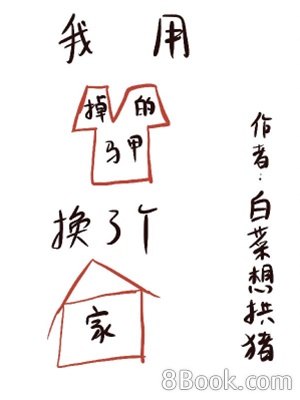 我用
掉的
马甲
换了个
家
作者:白菜想拱猪
8Book.com